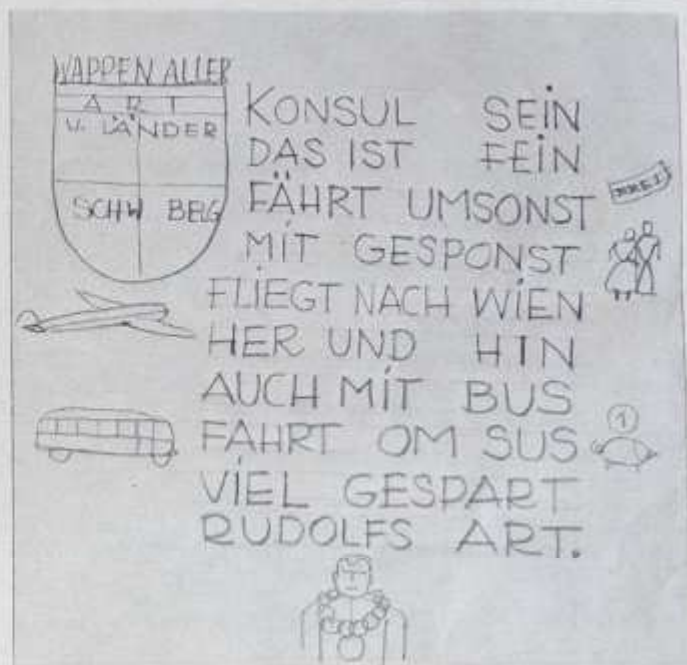 WAPPEN ALLER
ART
U. LÄNDER
SCHW BELG
KONSUL SEIN
DAS IST FEIN
FÄHRT UMSONST
MIT GESPONST
FLIEGT NACH WIEN
HER UND HIN
AUCH MIT BUS
FAHRT OM SUS
VIEL GESPART
RUDOLFS ART.
1